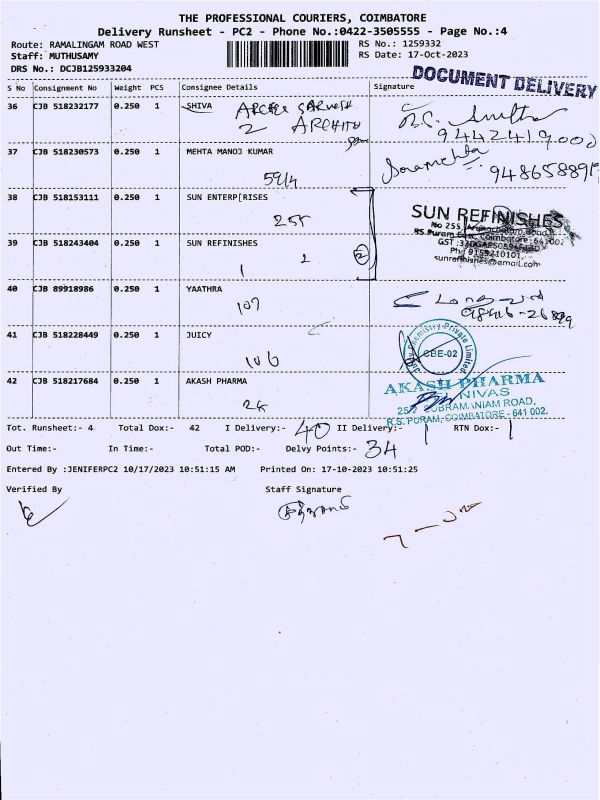 THE PROFESSIONAL COURIERS, COIMBATORE
Delivery Runsheet - PC2 - Phone No.:0422-3505555 - Page No.:4
Route: RAMALINGAM ROAD WEST RS No.: 1259332
Staff: MUTHUSAMY RS Date: 17-Oct-2023
DRS No.: DCJB125933204
DOCUMENT DELIVERY
S No Consignment No Weight PCS Consignee Details Signature
36 CJB 518232177 0.250 1 SHIVA
2
9442419000
37 CJB 518230573 0.250 1 MEHTA MANOJ KUMAR
59/4
38 CJB 518153111 0.250 1 SUN ENTERP[RISES
255
SUN REFINISHES
No 255
RS.Puram East, Coimbatore-641002
39 CJB 518243404 0.250 1 SUN REFINISHES
2
Ph: 9159210101
sunrefinishes@email.com
40 CJB 89918986 0.250 1 YAATHRA
107
41 CJB 518228449 0.250 1 JUICY
106
Chemistry Private Limited
CBE-02
42 CJB 518217684 0.250 1 AKASH PHARMA
AKASH PHARMA
NIVAS
ROAD,
R.S. PURAM, COIMBATORE - 641 002.
Tot. Runsheet:- 4 Total Dox:- 42 I Delivery:- 40 II Delivery:- 1 RTN Dox:- 1
Out Time:- In Time:- Total POD:- Delvy Points:- 34
Entered By :JENIFERPC2 10/17/2023 10:51:15 AM Printed On: 17-10-2023 10:51:25
Verified By Staff Signature